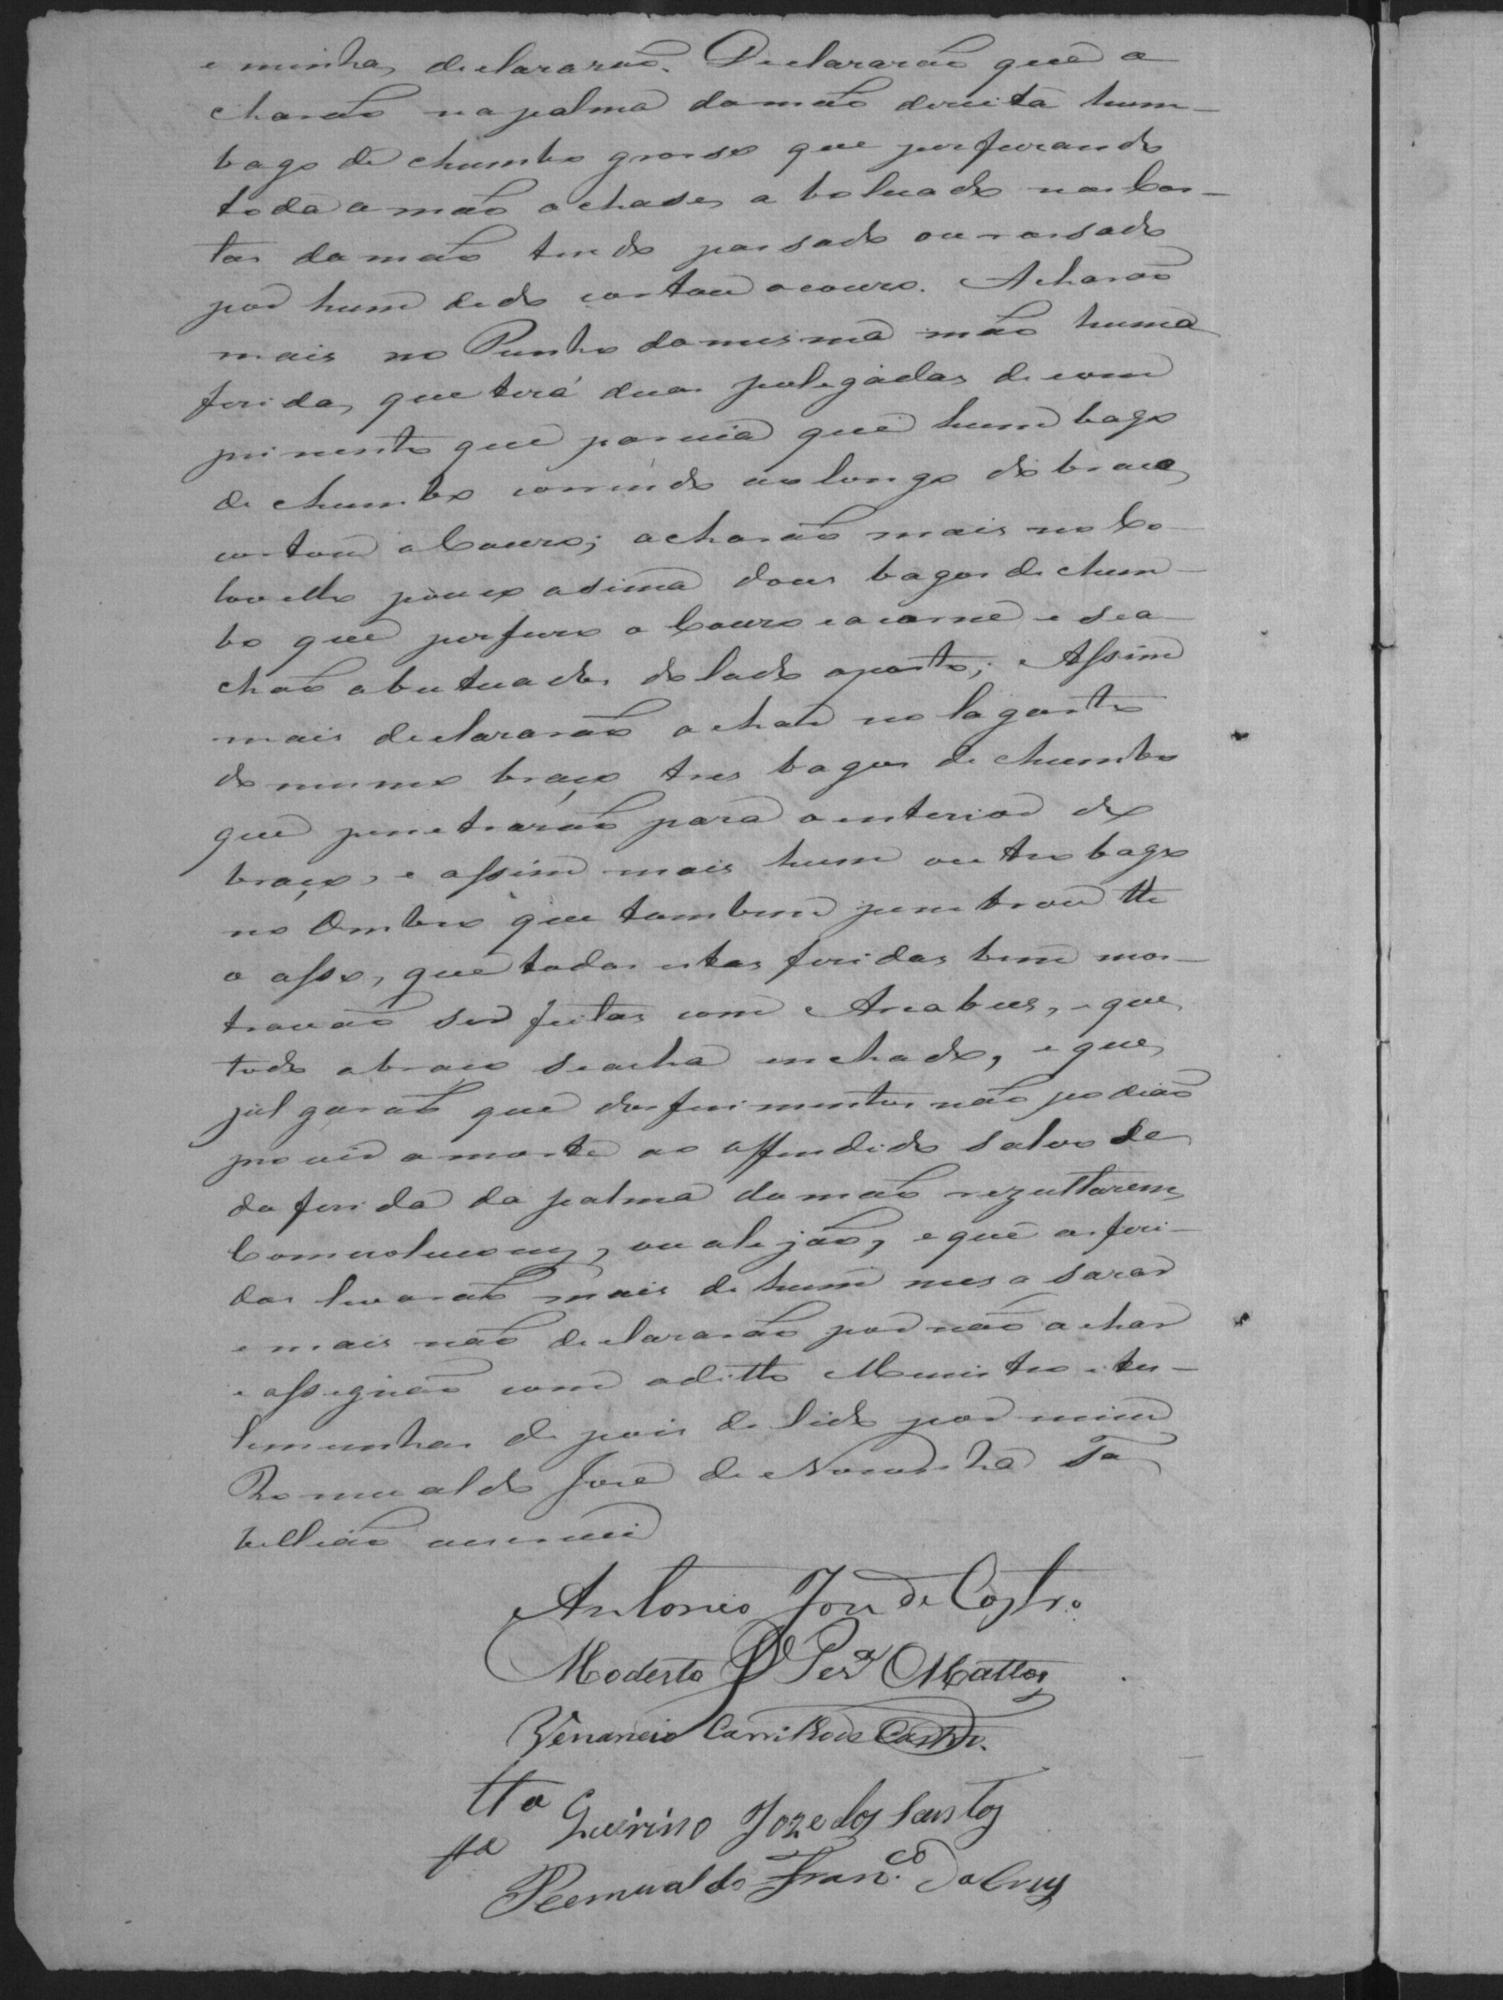 e minha, declararão. Declararão que a
charão na palma da mão direita hum
bago de chumbo grosso que perfurando
toda a mão achase, a boluado nas Cos-
tas da mão tendo passado ou rassado
por hum dedo cortou o couro. Acharão
mais no Punho da mesma mão huma
ferida, que terá duas polegadas de com
primento que parecia que hum bago
de chumbo correndo ao longo do braço
cortou o Couro; acharão mais no Co-
tovello pouco asima dous bagos de chum-
bo que perfuro o Couro e a carne e sea-
chão abutuados do lado oposto; Assim
mais declararão achar no lagarto
do mesmo braço tres bagos de chumbo
que penetrárão para o interior do
braço, e assim mais hum outro bago
no Ombro que tambem penetrou the
o osso, que todas estas feridas bem mos-
travão ser feitas com Arcabus, e que
todo o braço se acha enchado, e que
julgarão que dos ferimentos não podião
provir a morte ao offendido salvo se
da ferida da palma da mão rezultarem
Comvolucoens, ou alejão, e que as feri-
das levarão mais de hum mes a sarar
e mais não declararão por não achar
e assignão com o ditto Menistro e tes-
temunhas depois de lido por mim
Romualdo José de Noronha Ta
bellião escrevi
Antonio Jose de Castro
Modesto P Per.ª Mattos
Venancio Carrilho de Castro.
Tta Quirino Joze dos Santos
tta
Romualdo Fran.co da Cruz